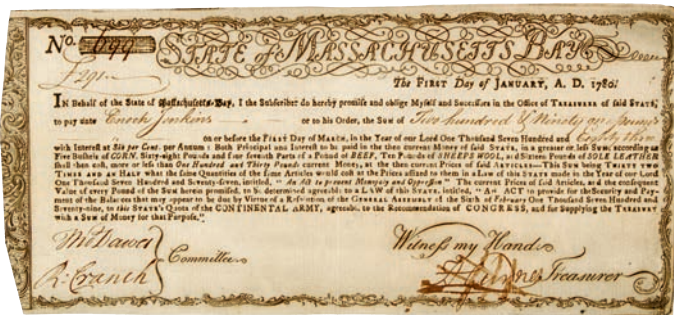 No. 699 STATE of MASSACHUSETTS BAY
£291
The FIRST Day of JANUARY, A. D. 1780.
IN Behalf of the State of Massachusetts-Bay, I the Subscriber do hereby promise and oblige Myself and Successors in the Office of TREASURER of said STATE,
to pay unto Enoch Jenkins or to his Order, the Sum of Two hundred & Ninety one pounds
on or before the FIRST Day of MARCH, in the Year of our Lord One Thousand Seven Hundred and Eighty three
with Interest at Six per Cent. per Annum: Both Principal and Interest to be paid in the then current Money of said STATE, in a greater or less SUM, according as
Five Bushels of CORN, Sixty-eight Pounds and four seventh Parts of a Pound of BEEF, Ten Pounds of SHEEPS WOOL, and Sixteen Pounds of SOLE LEATHER
shall then cost, more or less than One Hundred and Thirty Pounds current Money, at the then current Prices of said ARTICLES—This SUM being THIRTY TWO
TIMES AND AN HALF what the same Quantities of the same Articles would cost at the Prices affixed to them in a LAW of this STATE made in the Year of our Lord
One Thousand Seven Hundred and Seventy-seven, intitled, "An Act to prevent Monopoly and Oppression." The current Prices of said Articles, and the consequent
Value of every Pound of the Sum herein promised, to be determined agreeable to a LAW of this STATE, intitled, "An ACT to provide for the Security and Pay-
ment of the Balances that may appear to be due by Virtue of a Resolution of the GENERAL ASSEMBLY of the Sixth of February One Thousand Seven Hundred and
Seventy-nine, to this STATE's Quota of the CONTINENTAL ARMY, agreeable to the Recommendation of CONGRESS, and for Supplying the TREASURY
with a SUM of Money for that Purpose."
Witness my Hand
Thos Dawes
Committee
R: Cranch
Treasurer